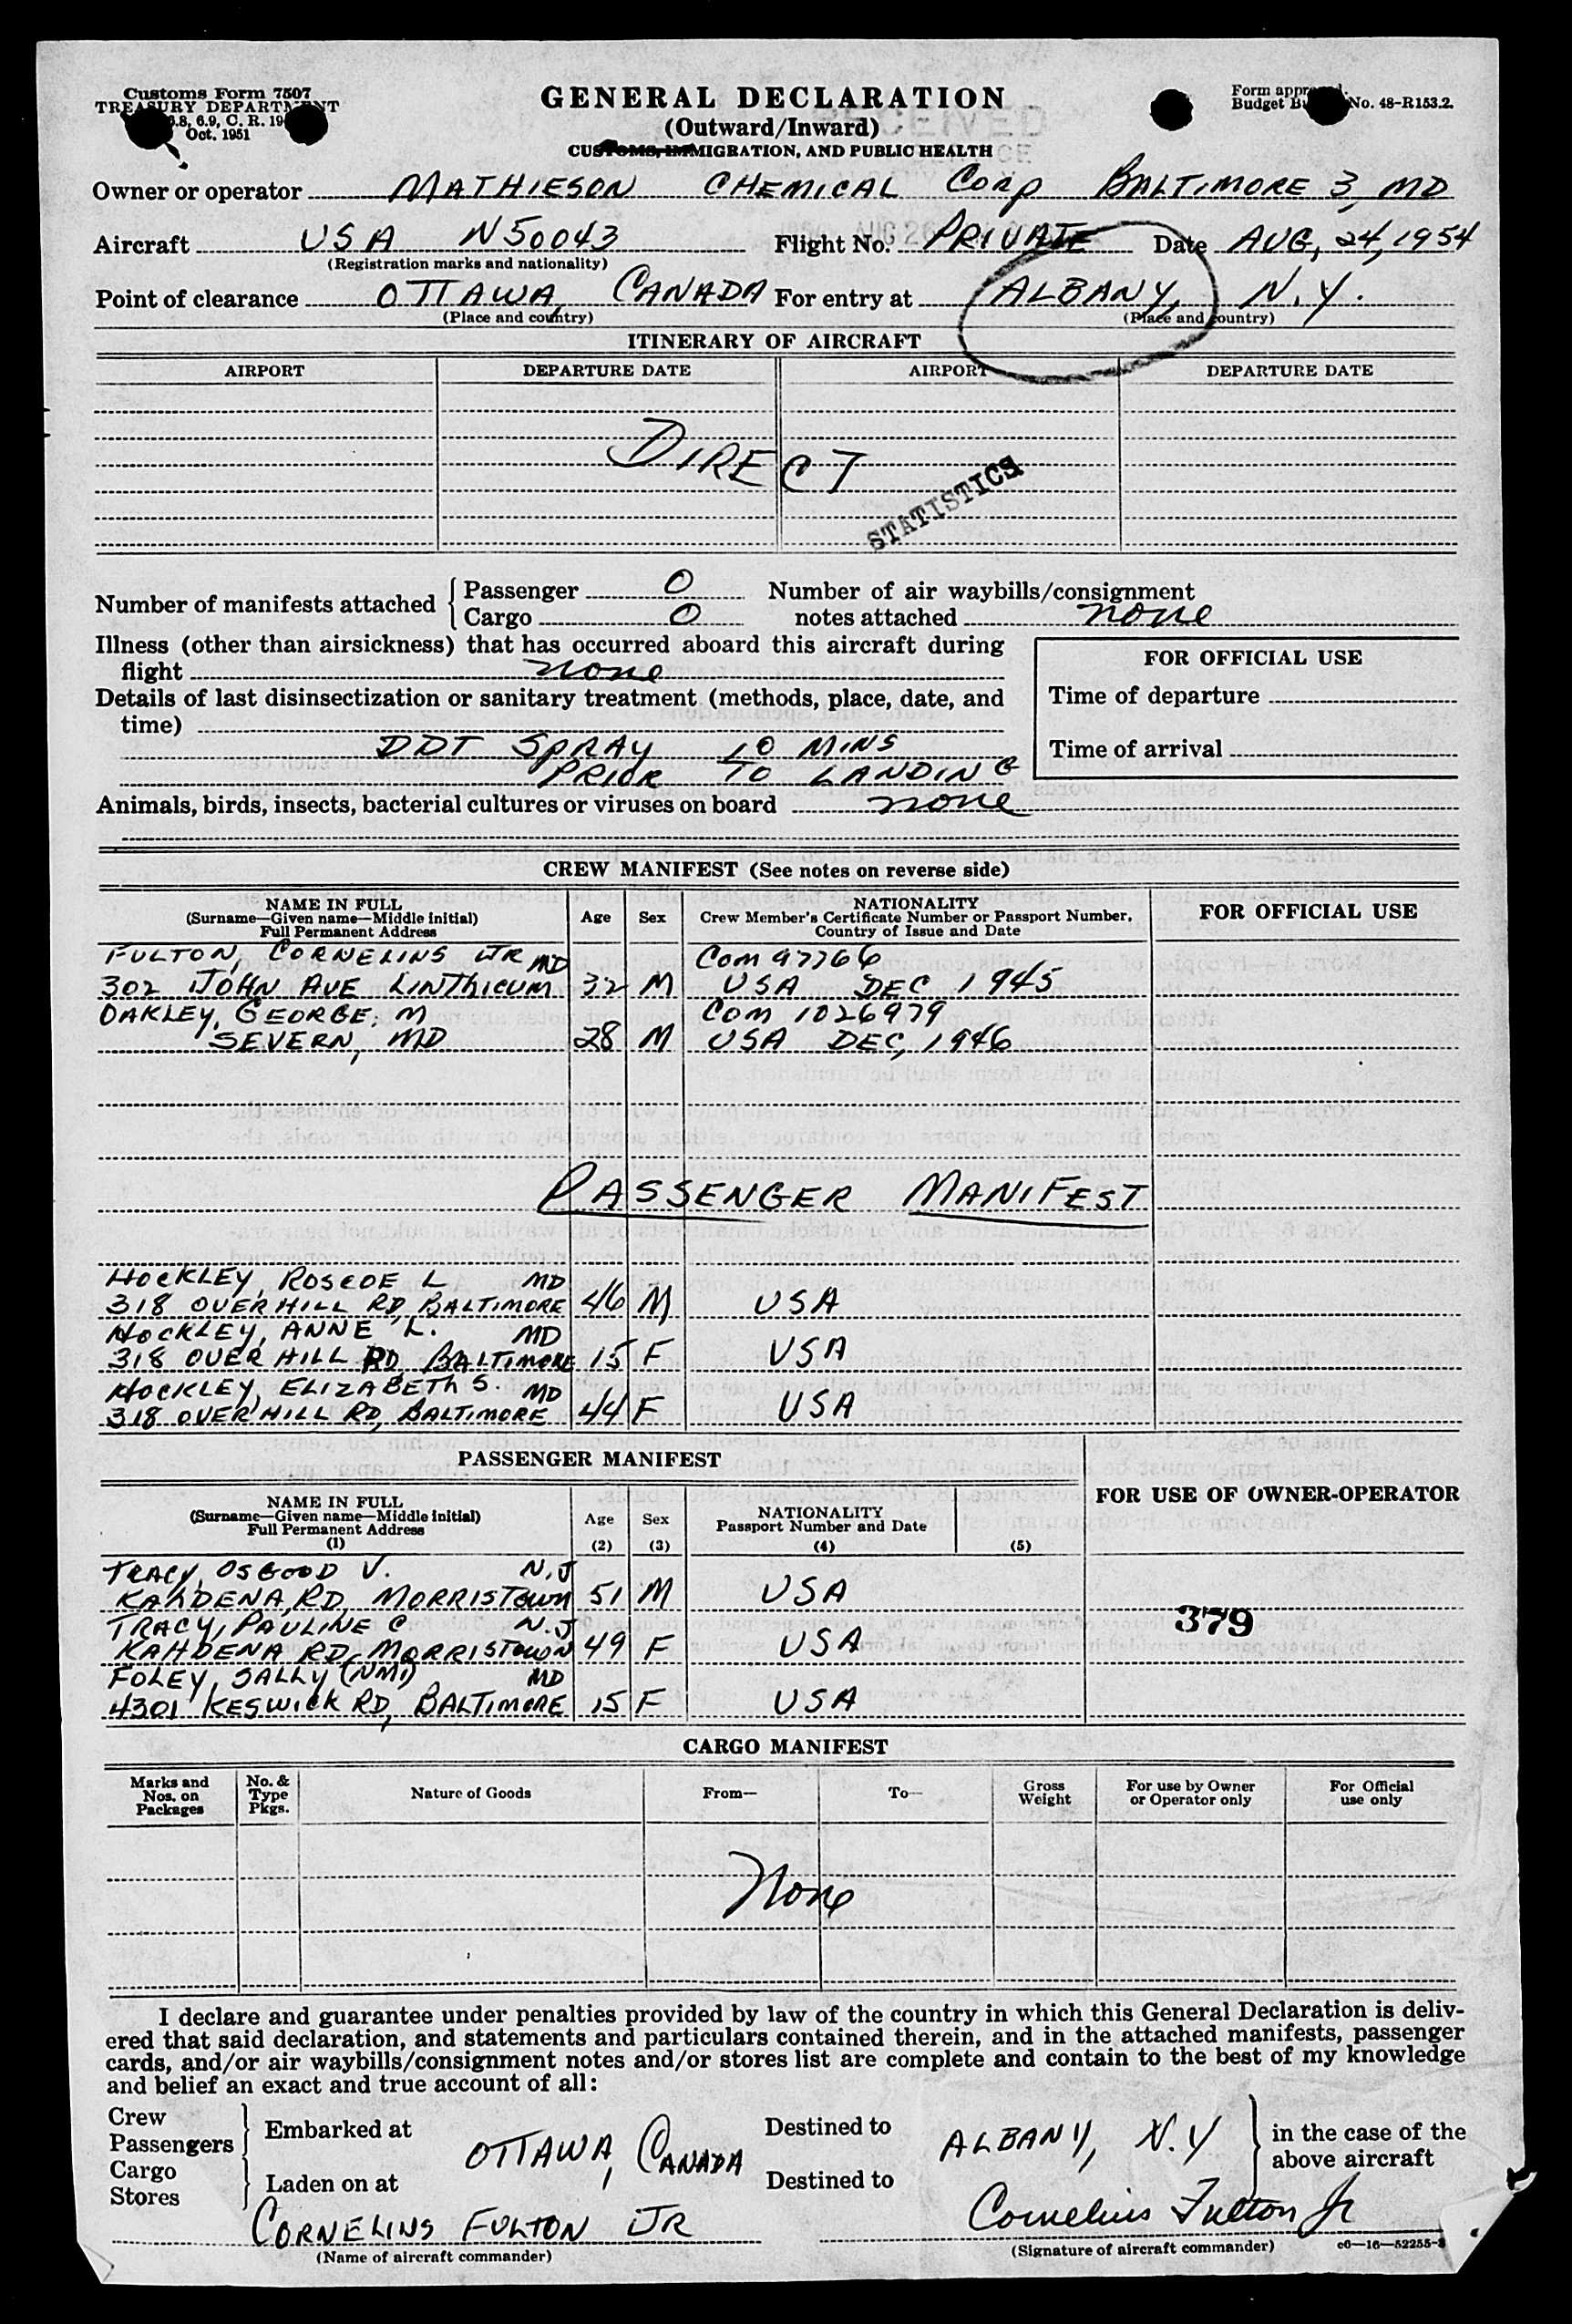 Customs Form 7507
TREASURY DEPARTMENT
6.8, 6.9, C. R. 19
Oct. 1951
GENERAL DECLARATION
(Outward/Inward)
CUSTOMS, IMMIGRATION, AND PUBLIC HEALTH
Form appr
Budget B No. 48-R153.2.
RECEIVED
Owner or operator MATHIESON CHEMICAL Corp BALTIMORE 3, MD
Aircraft USA N50043 Flight No. PRIVATE Date AUG, 24, 1954
(Registration marks and nationality)
Point of clearance OTTAWA, CANADA For entry at ALBANY, N.Y.
(Place and country) (Place and country)
ITINERARY OF AIRCRAFT
AIRPORT DEPARTURE DATE AIRPORT DEPARTURE DATE
DIRECT
STATISTICS
Number of manifests attached { Passenger 0 Number of air waybills/consignment
Cargo 0 notes attached none
Illness (other than airsickness) that has occurred aboard this aircraft during
flight none
FOR OFFICIAL USE
Details of last disinsectization or sanitary treatment (methods, place, date, and
time)
Time of departure
DDT SPRAY 10 MINS
PRIOR TO LANDING
Time of arrival
Animals, birds, insects, bacterial cultures or viruses on board none
CREW MANIFEST (See notes on reverse side)
NAME IN FULL
(Surname—Given name—Middle initial)
Full Permanent Address
Age
Sex
NATIONALITY
Crew Member's Certificate Number or Passport Number,
Country of Issue and Date
FOR OFFICIAL USE
FULTON, CORNELIUS JR MD Com 97766
302 JOHN AVE LINTHICUM 32 M USA DEC 1945
OAKLEY, GEORGE, M Com 1026979
SEVERN, MD 28 M USA DEC, 1946
PASSENGER MANIFEST
HOCKLEY, ROSCOE L MD
318 OVERHILL RD, BALTIMORE 46 M USA
HOCKLEY, ANNE L. MD
318 OVERHILL RD, BALTIMORE 15 F USA
HOCKLEY, ELIZABETH S. MD
318 OVERHILL RD, BALTIMORE 44 F USA
PASSENGER MANIFEST
NAME IN FULL
(Surname—Given name—Middle initial)
Full Permanent Address
(1)
Age
(2)
Sex
(3)
NATIONALITY
Passport Number and Date
(4)
(5)
FOR USE OF OWNER-OPERATOR
TRACY, OSGOOD V. N.J
KAHDENA, RD, MORRISTOWN 51 M USA
379
TRACY, PAULINE C N.J
KAHDENA RD, MORRISTOWN 49 F USA
FOLEY, SALLY (NMI) MD
4301 KESWICK RD, BALTIMORE 15 F USA
CARGO MANIFEST
Marks and Nos. on Packages
No. & Type Pkgs.
Nature of Goods
From—
To—
Gross Weight
For use by Owner or Operator only
For Official use only
None
I declare and guarantee under penalties provided by law of the country in which this General Declaration is deliv-
ered that said declaration, and statements and particulars contained therein, and in the attached manifests, passenger
cards, and/or air waybills/consignment notes and/or stores list are complete and contain to the best of my knowledge
and belief an exact and true account of all:
Crew
Passengers
Cargo
Stores
Embarked at
Laden on at
OTTAWA, CANADA
Destined to
Destined to
ALBANY, N.Y
in the case of the
above aircraft
CORNELIUS FULTON JR Cornelius Fulton Jr
(Name of aircraft commander) (Signature of aircraft commander) c6—16—52255-3